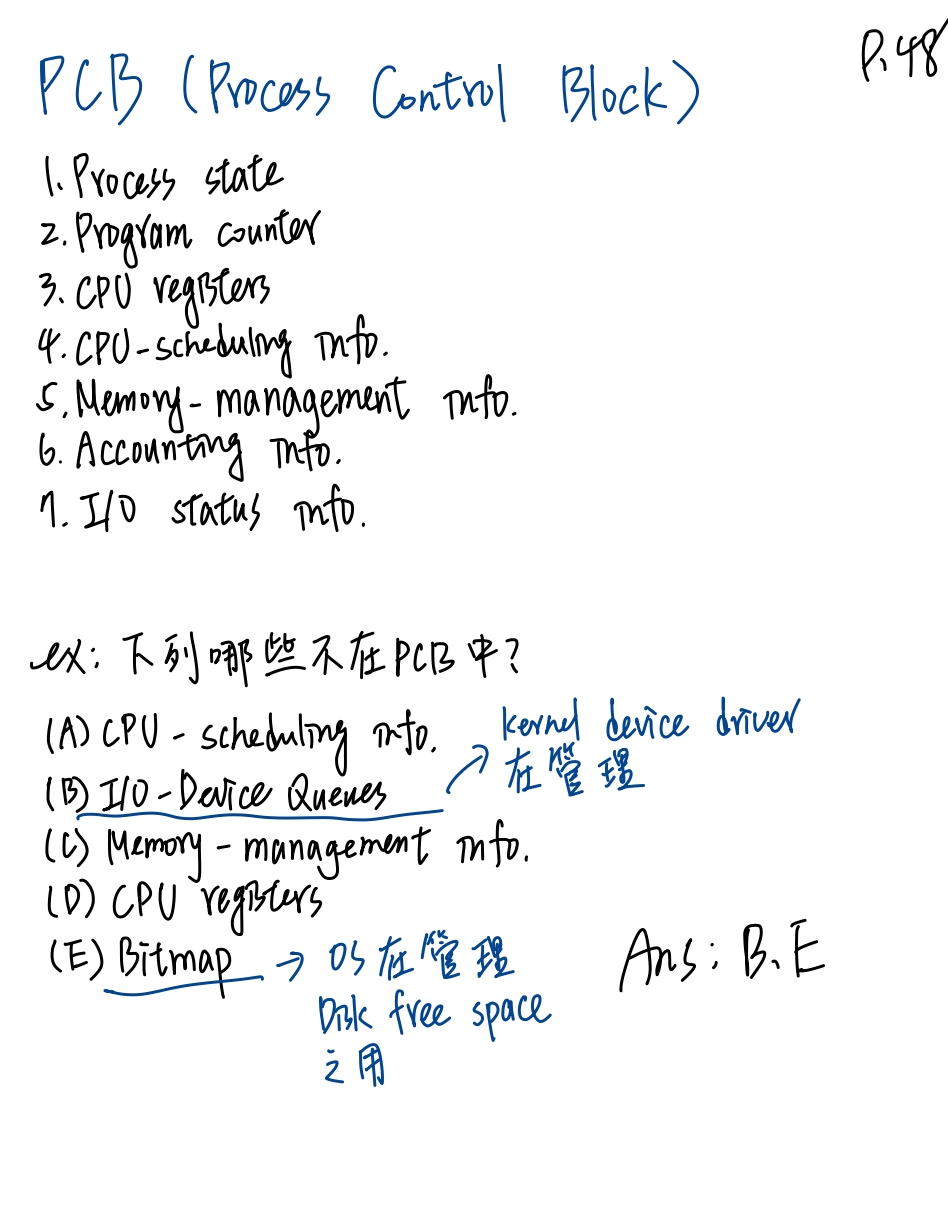 P.48
PCB (Process Control Block)
1. Process state
2. Program counter
3. CPU registers
4. CPU-scheduling info.
5. Memory-management info.
6. Accounting info.
7. I/O status info.
ex: 下列哪些不在PCB中?
(A) CPU - scheduling info.
(B) I/O-Device Queues
kernel device driver
在管理
(C) Memory - management info.
(D) CPU registers
(E) Bitmap → OS在管理
Disk free space
之用
Ans: B、E